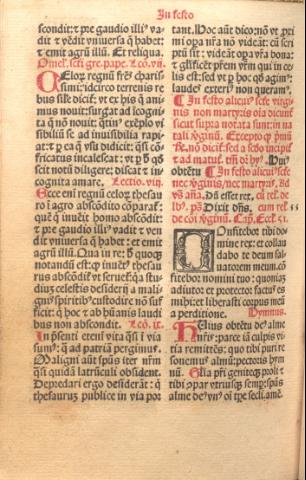 In festo
scondit: ⁊ pre gaudio illiꝰ va-
dit ⁊ vēdit vniuersa q̄ habet:
⁊ emit agrū illū. Et reliqua.
Omel. scti gre. pape. Lcō. vij.
CElorͫ regnū frēs charis-
simi: idcirco terrenis re-
bus sile dicit̄: vt ex his q̄ ani-
mus nouit: surgat ad icogni-
ta q̄ nō nouit: q̄tin̄ exēplo vi-
sibiliū se ad inuisibilia rapi-
at: ⁊ p ea q̄ vsu didicit: q̄si cō-
fricatus incalescat: vt p h̄ qd̄
scit notū diligere: discat ⁊ in-
cognita amare. Lectio. viij.
Ecce eni regnū celorͫ thesau-
ro ī agro abscōdito cōparat̄:
quē q̄ inuēit homo abscōdit:
⁊ pre gaudio illiꝰ vadit ⁊ ven
dit vniuersa q̄ habet: ⁊ emit
agrū illū. Qua in re h̄ quoqꝫ
notandū est: qͥ inuētꝰ thesau
rus abscōdit̄ vt seruet̄: q̄a stu-
diuꝫ celestis desiderij a mali-
gnis spiritibꝰ custodire nō suf
ficit: q̄ hoc ⁊ ab hūanis laudi
bus non abscondit. Lcō. ix.
In p̄senti eteni vita q̄si ī via
sumꝰ: q̄ ad patriā pergimus.
Maligni aūt spūs iter nr̄m
q̄si quidā latrūculi obsident.
Depredari ergo desiderat: q̄
thesaurūꝫ publice in via por
tant. Hoc aūt dico: nō vt pxi
mi opa nr̄a nō videāt: cū scri
ptū sit: videāt opa vr̄a bona:
⁊ glificēt prēm vrm qui in ce-
lis est: sed vt p hoc qd̄ agimꝰ:
laudes exteri non querām̄.
¶ In festo alicuiꝰ scte virgi-
nis non martyris oīa dicunt̄
sicut supra notata sunt: in na-
tali virgīs. Excepto qd̄
nō dicit̄: sed a scōo incipit̄
⁊ ad matut̄.
obtētu ¶ In festo alicuiꝰ
nec virginis: nec martyris. Ad
vs. aña. Dū esset rex.
Dixit dn̄s.
de cōi virginū. Cap. Eccl. 51.
COnfitebor tibi do-
mine rex: ⁊ collau
dabo te deum sal-
uatorem meum. cō
fitebor nomini tuo: quoniaꝫ
adiutor ⁊ protector factus es
mihi: et liberasti corpus meū
a perditione. Hymnus.
HUius obtētu dēꝰ alme
nr̄is: parce iā culpis vi-
tia remittēs: quo tibi puri re
sonemus almū: pectoris hym
nū. Glia pri genitoqꝫ proli ⁊
tibi ꝯpar vtriusqꝫ semp: spūs
alme dēꝰ vnꝰ oī tpe secli. amē.